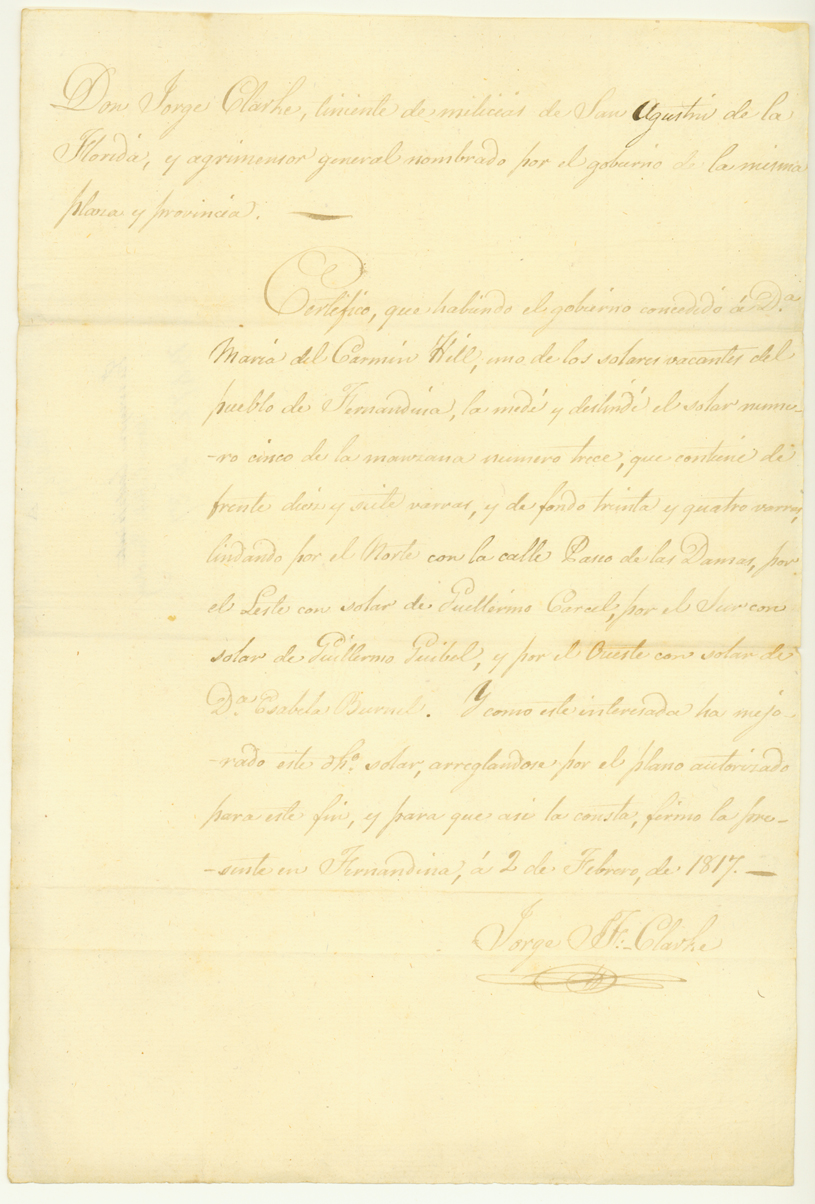 Don Jorge Clarke, teniente de milicias de San Agustin de la
Florida, y agrimensor general nombrado por el gobierno de la misma
plaza y provincia.
Certifico, que habiendo el gobierno concedido á D.ª
Maria del Carmin Hill, uno de los solares vacantes del
pueblo de Fernandina, la medí y deslindé el solar nume-
-ro cinco de la manzana numero trece, que contiene de
frente diez y siete varas, y de fondo trinta y quatro varas,
lindando por el Norte con la calle Paseo de las Damas, por
el Leste con solar de Guillermo Carcel, por el Sur con
solar de Guillermo Guibel, y por el Oueste con solar de
D.ª Ysabela Burnel. Y como este interesada ha mejo-
-rado este dho. solar, arreglandose por el plano autorizado
para este fin, y para que asi la consta, firmo la pre-
-sente en Fernandina, á 2 de Febrero, de 1817.
Jorge J. F. Clarke